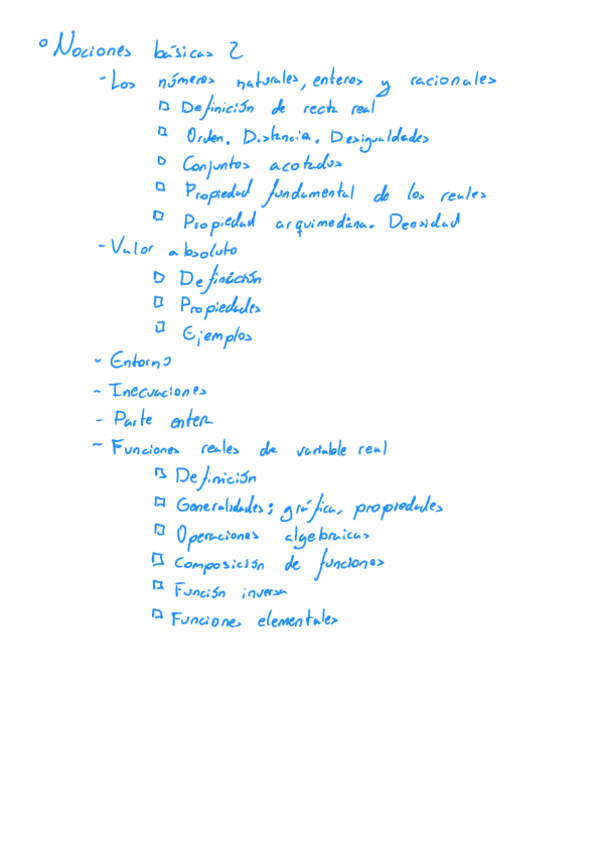 ° Nociones básicas 2
- Los números naturales, enteros y racionales
□ Definición de recta real
□ Orden. Distancia. Desigualdades
□ Conjuntos acotados
□ Propiedad fundamental de los reales
□ Propiedad arquimediana. Densidad
- Valor absoluto
□ Definición
□ Propiedades
□ Ejemplos
- Entorno
- Inecuaciones
- Parte entera
- Funciones reales de variable real
□ Definición
□ Generalidades: gráfica, propiedades
□ Operaciones algebraicas
□ Composición de funciones
□ Función inversa
□ Funciones elementales